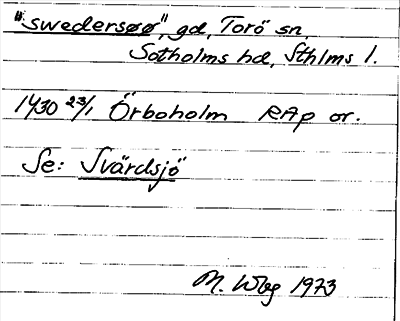 "swedersøø", gd, Torö sn,
Sotholms hd, Sthlms l.
1430 23/1 Örboholm RAp or.
Se: Svärdsjö
M. Wbg 1973